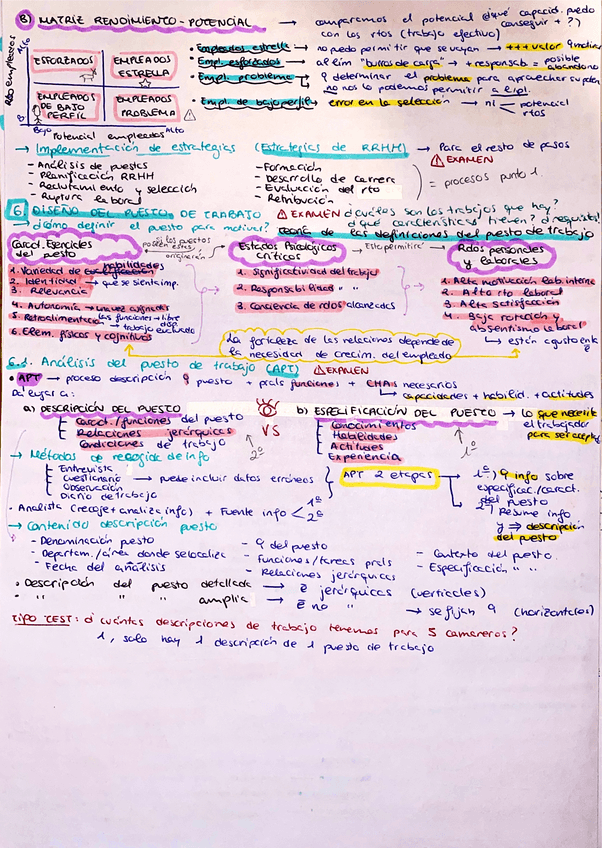 B) MATRIZ RENDIMIENTO - POTENCIAL → comparamos el potencial (¿qué capacid. puedo conseguir + ?)
con los rtos (trabajo efectivo)
Rdo empleados
Alto
ESFORZADOS
EMPLEADOS ESTRELLA
EMPLEADOS DE BAJO PERFIL
EMPLEADOS PROBLEMA
Bajo
Potencial empleados
Alto
• Empleados estrella → no puedo permitir que se vayan → +++ valor
• Empl. esforzados → "burros de carga" → + responsab = posible abandono
• Empl. problema → determinar el problema para aprovechar su
no nos lo podemos permitir
• Empl. de bajo perfil → error en la selección → ni potencial
rtos
→ Implementación de estrategias (Estrategias de RRHH) → Para el resto de pasos
⚠ EXAMEN
- Análisis de puestos
- Planificación RRHH
- Reclutamiento y selección
- Ruptura laboral
- Formación
- Desarrollo de carrera
- Evaluación del rto
- Retribución
= procesos punto 1
6. DISEÑO DEL PUESTO DE TRABAJO ⚠ EXAMEN ¿cuáles son los trabajos que hay?
¿qué características tienen? ¿requisitos?
→ ¿Cómo definir el puesto para motivar? teoría de las definiciones del puesto de trabajo
Caract. Esenciales del puesto
los puestos poseen estas, originarán
Estados Psicológicos críticos
Esto permitirá
Rdos personales y laborales
1. Variedad de habilidades
2. Identidad → que se sienta imp.
3. Relevancia
4. Autonomía → una vez asignadas las funciones → libre disp.
5. Retroalimentación → trabajo evaluado
6. Elem. físicos y cognitivos
1. Significatividad del trabajo
2. Responsabilidad " "
3. Conciencia de rdos alcanzados
1. Alta motivación lab. interna
2. Alto rto laboral
3. Alta satisfacción
4. Baja rotación y absentismo laboral
La fortaleza de las relaciones depende de
la necesidad de crecim. del empleado
6.1. Análisis del puesto de trabajo (APT) ⚠ EXAMEN
• APT → proceso descripción q puesto + prals funciones + CHAs necesarios
↳ capacidades + habilid. + actitudes
Da lugar a:
a) DESCRIPCIÓN DEL PUESTO
Caract./funciones del puesto
Relaciones jerárquicas
Condiciones de trabajo
2º
VS
b) ESPECIFICACIÓN DEL PUESTO → lo que necesite
el trabajador
para ser acept
Conocimientos
Habilidades
Actitudes
Experiencia
1º
→ Métodos de recogida de info
Entrevista
Cuestionario → puede incluir datos erróneos
Observación
Diario de trabajo
APT 2 etapas
1º) q info sobre
especificac./caract.
del puesto
2º) Resume info
y ⇒ descripción
del puesto
• Analista (recoje + analiza info) + Fuente info < 1ª
2ª
→ Contenido descripción puesto
- Denominación puesto
- Departam./área donde se localiza
- Fecha del análisis
- q del puesto
- Funciones/tareas prals
- Relaciones jerárquicas
- Contexto del puesto
- Especificación " "
• Descripción del puesto detallada → jerárquicas (verticales)
• " " " amplia → no " → se fijan q (horizontales)
TIPO TEST: ¿cuántas descripciones de trabajo tenemos para 5 camareros?
1, solo hay 1 descripción de 1 puesto de trabajo